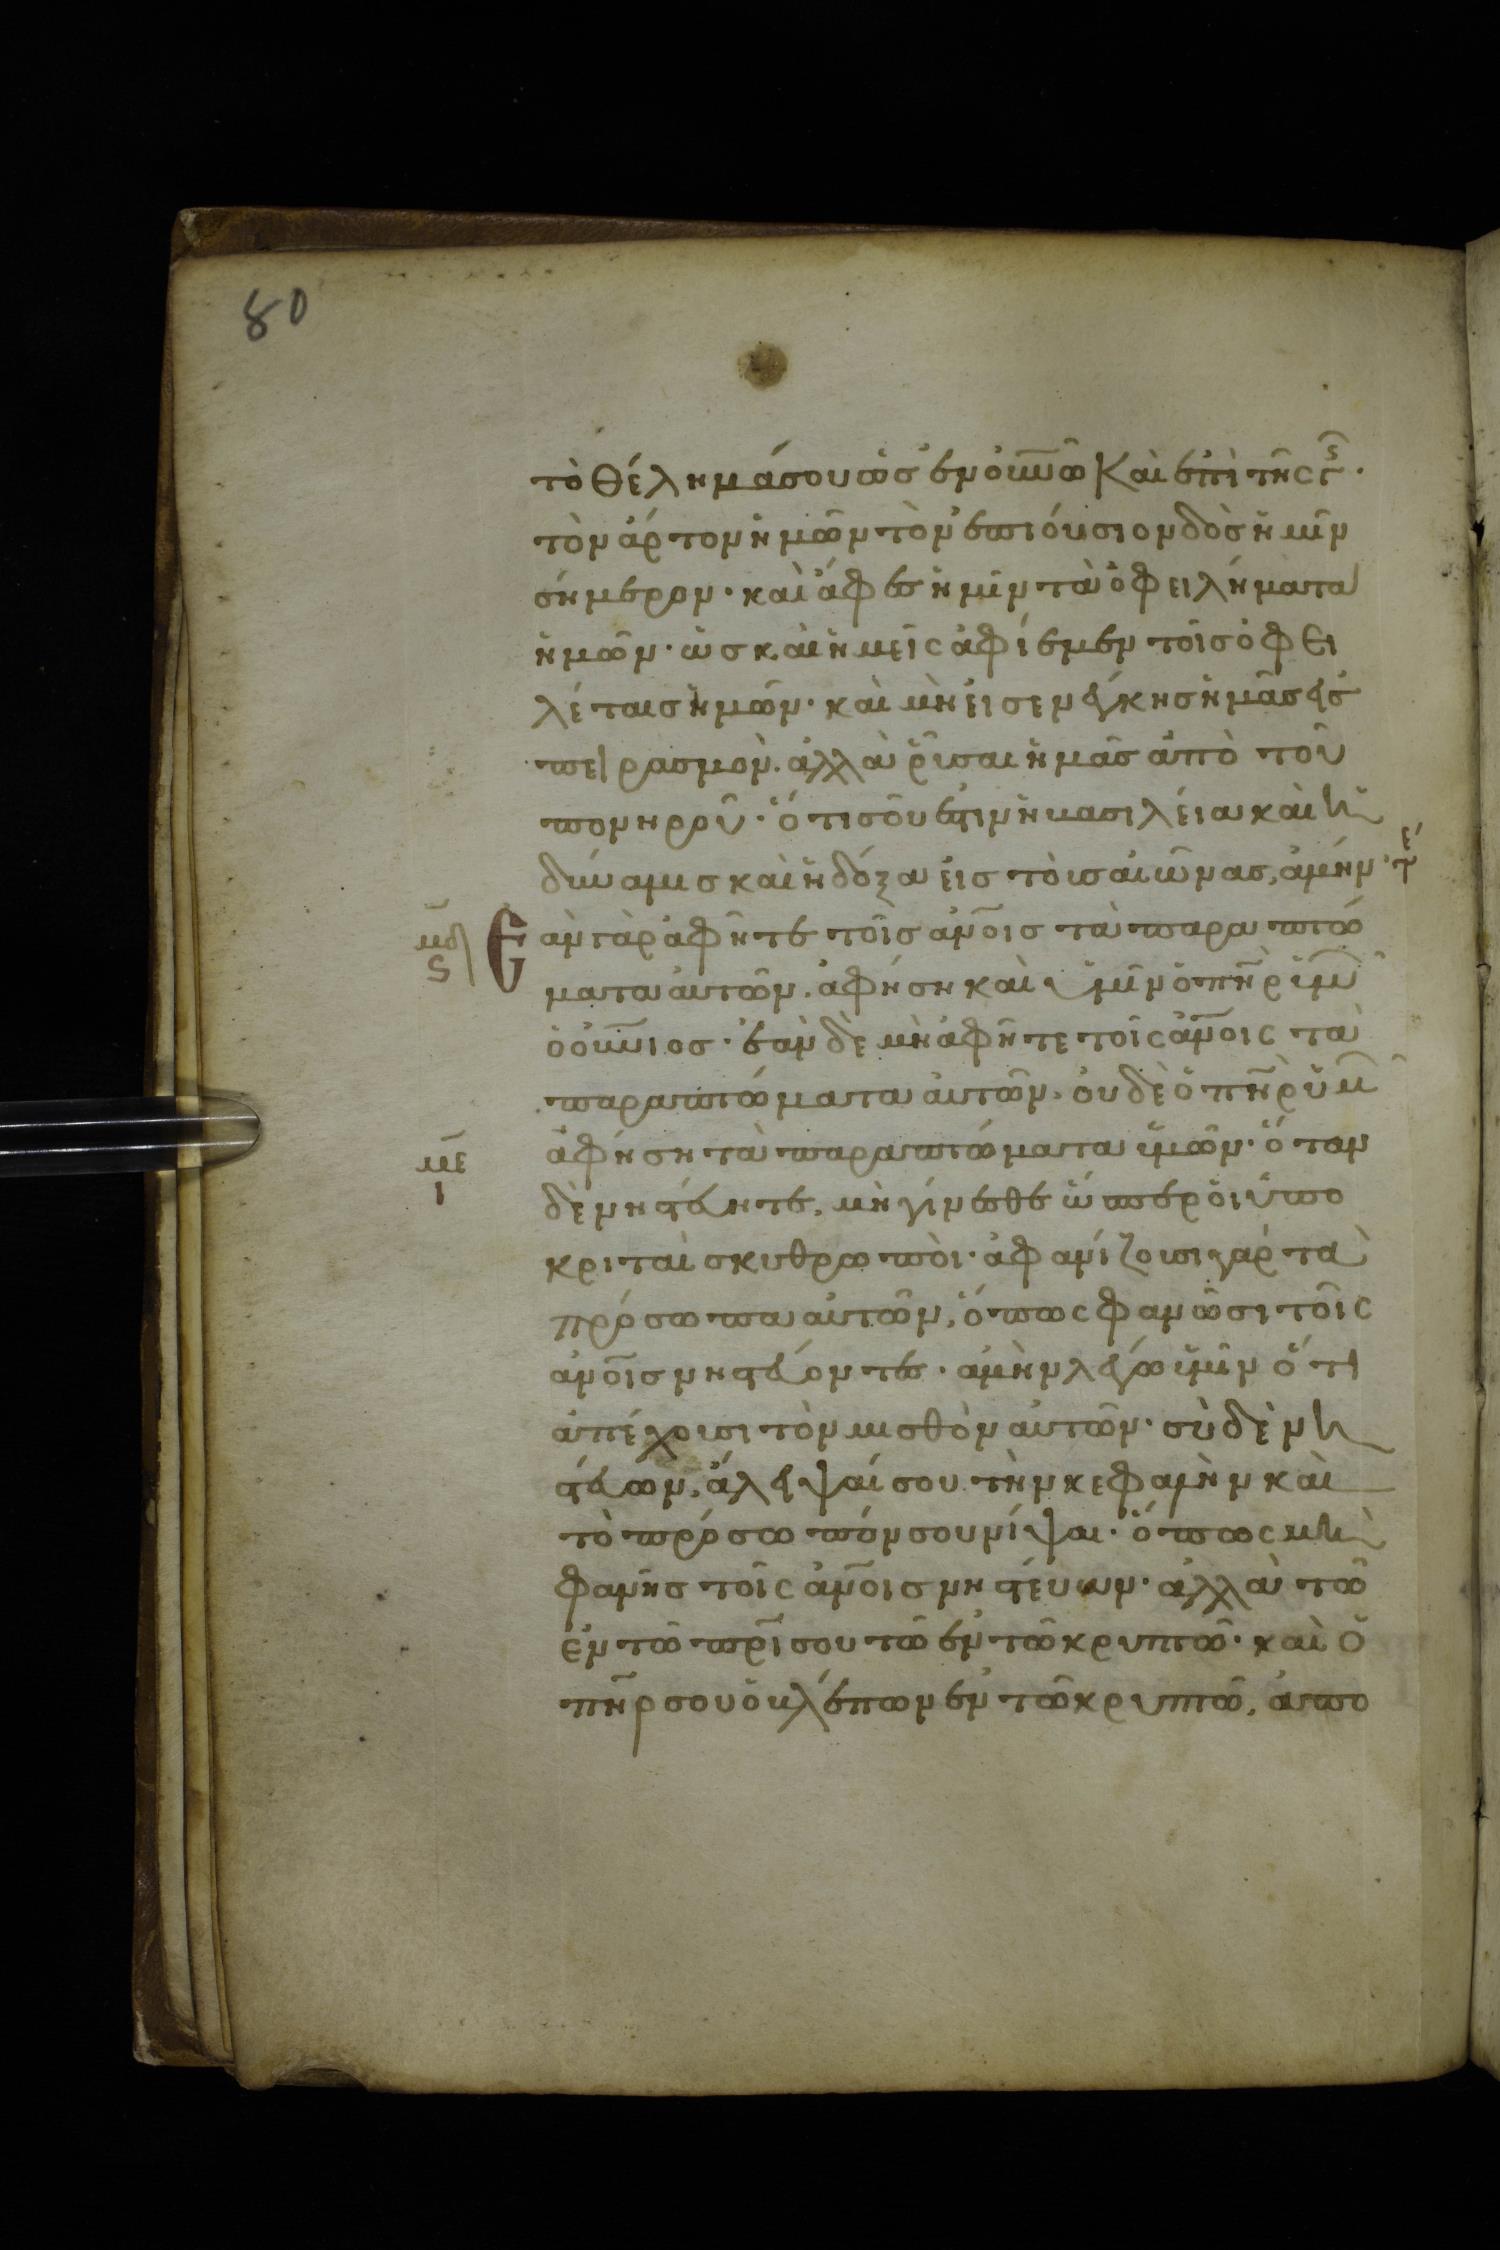 80
τὸ θέλημά σου ὡς ἐν οὐνω καὶ ἐπὶ τῆς γῆς·
τὸν ἄρτον ἡμῶν τὸν ἐπιούσιον δὸς ἡμῖν
σήμερον· καὶ ἄφες ἡμῖν τὰ ὀφειλήματα
ἡμῶν· ὡς καὶ ἡμεῖς ἀφίεμεν τοῖς ὀφει
λέταις ἡμῶν· καὶ μὴ εἰσενέγκης ἡμᾶς εἰς
πειρασμὸν. ἀλλὰ ῥῦσαι ἡμᾶς ἀπὸ τοῦ
πονηροῦ· ὅτι σοῦ ἐστιν ἡ βασιλεία καὶ ἡ
δύναμις καὶ ἡ δόξα εἰς τοὺς αἰῶνας, ἀμήν·
μδ
ς
Ἐὰν γὰρ ἀφῆτε τοῖς ἀνοις τὰ παραπτώ
ματα αὐτῶν. ἀφήση καὶ ὑμῖν ὁ πηρ ὑμῶν
ὁ οὐνιος· ἐὰν δὲ μὴ ἀφῆτε τοῖς ἀνοις τὰ
παραπτώματα αὐτῶν. οὐδὲ ὁ πηρ ὑμῶν
ἀφήση τὰ παραπτώματα ὑμῶν· ὅταν
με
ι
δὲ νηστεύητε, μὴ γίνεσθε ὥσπερ οἱ ὑπο
κριταὶ σκυθρωποὶ· ἀφανίζουσι γὰρ τὰ
πρόσωπα αὐτῶν, ὅπως φανῶσι τοῖς
ἀνοις νηστεύοντες· ἀμὴν λέγω ὑμῖν ὅτι
ἀπέχουσι τὸν μισθὸν αὐτῶν· σὺ δὲ νη
στεύων, ἄλειψαί σου τὴν κεφαλὴν καὶ
τὸ πρόσωπόν σου νίψαι· ὅπως μὴ
φανῆς τοῖς ἀνοις νηστεύων· ἀλλὰ τῶ
ἐν τῶ πρι σου τῶ ἐν τῶ κρυπτῶ· καὶ ὁ
πηρ σου ὁ βλέπων ἐν τῶ κρυπτῶ, ἀπο